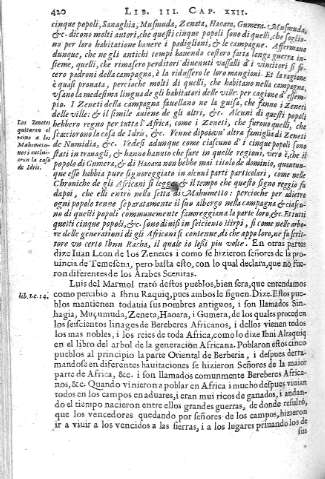 420 LIB. III. CAP. XXII.
cinque popoli, Sanaghia, Musmuda, Zeneta, Haoara, Gumera. Musmuda,
&c. dicono molti autori, che questi cinque popoli sono di quelli, che soglio-
no per loro habitatione havere i padiglioni, & le campagne. Affermano
dunque, che ne gli antichi tempi havendo costoro fatta lunga guerra in-
sieme, quelli, che rimasero perditori divenuti vassalli d' i vincitori si fe-
cero padroni della campagna, è la ridussero le loro mangioni. Et la ragione
è quasi pronata, perciosche molti di quelli, che habitano nella campagna,
usano la medesima lingua de gli habitatori delle ville: per cagione
I Zeneti della campagna favellano ne la guisa, che fanno i Zeneti
delle ville: & il simile aviene de gli altri, &c. Alcuni di questi popoli
hebbero regno per tutta l' Africa, come i Zeneti, che furono quelli, che
scacciorono la casa de Idris, &c. Venne dipoi un' altra famiglia di Zeneti
de Numidia, &c. Vedesi adunque come ciascun d' i cinque popoli sono
stati in travagli, & hanno havuto che fare in quelle regioni, vero è, che il
popolo di Gumera, & di Haoara non hebbe mai titolo de dominio, quantun-
que esse habbia pure signoreggiato in alcuni parti particolari, come nelle
Chroniche de gli Africani si legge & il tempo che questo signo reggio fu
dapoi, che elli entrò nella setta di Mahometto: percioche per adietro
ogni popolo tenne separatamente il suo albergo nella campagna & ciascu-
no di questi popoli communemente favoreggiava la parte loro, & Et tutti
questi cinque popoli, &c. sono divisi in seicento stirpi, si come nelle arbo-
re delle generationi de gli Africani si contiene, de che appo loro, ne fu scrit-
tore un certo Ibnu Racha, il quale io lessi piu volte. En otras partes
dize Iuan Leon de los Zenetes i como se hizieron señores de la pro-
vincia de Temesena, pero basta esto, con lo qual declara, que no fue-
ron diferentes de los Arabes Scenitas.
Luis del Marmol trató destos pueblos, bien sera, que entendamos
como percibio a Ibnu Raquiq, pues ambos le siguen. Dize. Estos pue-
blos mantienen todania sus nombres antiguos, i son llamados Sin-
hagia, Muçamuda, Zeneta, Haoara, i Gumera, de los quales proceden
los seiscientos linages de Bereberes Africanos, i dellos vienen todos
los mas nobles, i los reies de toda Africa, como lo dize Ibni Alraquiq
en el libro del arbol de la generacion Africana. Poblaron estos cinco
pueblos al principio la parte Oriental de Berberia, i despues derra-
mandose en diferentes habitaciones se hizieron Señores de la maior
parte de Africa, &c. i son llamados comunmente Bereberes Africa-
nos, &c. Quando vinieron a poblar en Africa i mucho despues vivian
todos en los campos en aduares, i eran mui ricos de ganados, i andan-
do el tiempo nacieron entre ellos grandes guerras, de donde resultó,
que los vencedores quedando por señores de los campos, hizieron
ir a vivir a los vencidos a las sierras, i a los lugares primando los de
sus
Los Zenetes
de Idris.
lib. 1. c. 14.